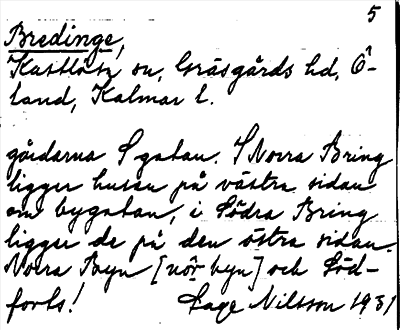 5
Bredinge,
Kastlösa sn, Gräsgårds hd, Ö-
land, Kalmar l.
gårdarna S gatan. I Norra Bring
ligger husen på västra sidan
om bygatan, i Södra Bring
ligger de på den östra sidan.
Norra Byn [nör byn] och Söd-
forts! Sage Nilsson 1931